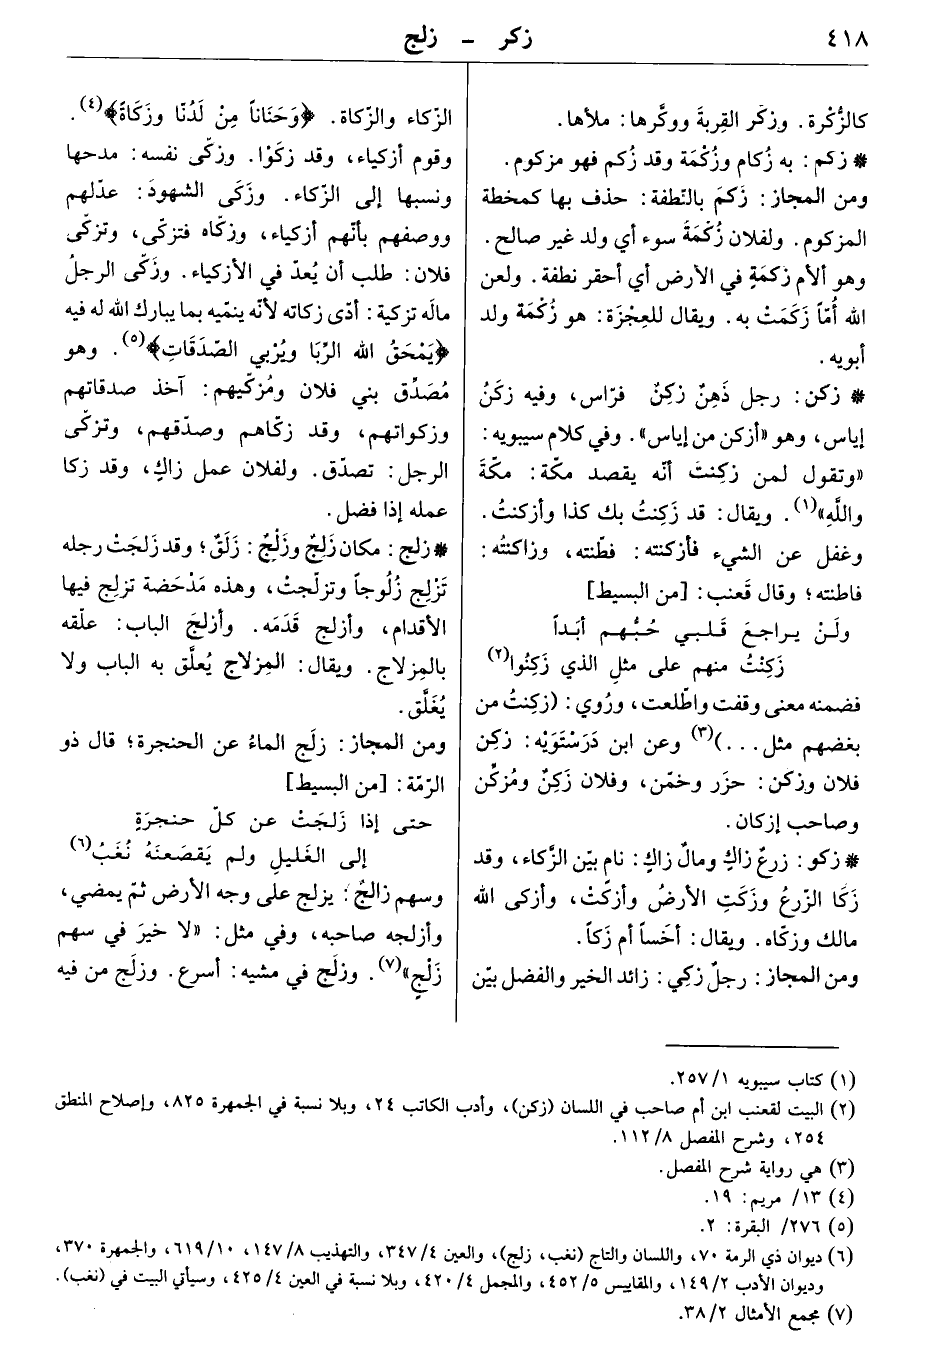 ٤١٨
زكر - زلج
كالزُّكْرة. وزكَر القِربةَ ووكَّرها: ملأها.
* زكم: به زُكام وزُكْمَة وقد زُكم فهو مزكوم.
ومن المجاز: زَكمَ بالنّطفة: حذف بها كمخطة
المزكوم. ولفلان زُكْمَةَ سوء أي ولد غير صالح.
وهو ألأم زكمَةٍ في الأرض أي أحقر نطفة. ولعن
الله أُمّاً زَكَمَتْ به. ويقال للعِجْزَة: هو زُكْمَة ولد
أبويه.
* زكن: رجل ذَهِنٌ زكِنٌ فرّاس، وفيه زكَنُ
إياس، وهو «أزكن من إياس». وفي كلام سيبويه:
«وتقول لمن زكِنتَ أنّه يقصد مكّة: مكّةَ
واللَّهِ»(١). ويقال: قد زَكِنتُ بك كذا وأزكنتُ.
وغفل عن الشيء فأزكنته: فطّنته، وزاكنتُه:
فاطنته؛ وقال قَعنب: [من البسيط]
ولَنْ يراجعَ قلبي حُبُّهم أبَداً
زَكِنْتُ منهم على مثلِ الذي زَكِنُوا(٢)
فضمنه معنى وقفت واطّلعت، ورُوي: (زكِنتُ من
بغضهم مثل...)(٣) وعن ابن دَرَسْتَوَيْه: زكِن
فلان وزكن: حزَر وخمّن، وفلان زَكِنٌ ومُزكِّن
وصاحب إزكان.
* زكو: زرعٌ زاكٍ ومالٌ زاكٍ: نام بيّن الزَّكاء، وقد
زَكَا الزّرعُ وزَكَتِ الأرضُ وأزكّتْ، وأزكى الله
مالك وزكّاه. ويقال: أخَساً أم زَكاً.
ومن المجاز: رجلٌ زكِي: زائد الخير والفضل بيّن
الزّكاء والزّكاة. ﴿وَحَنَاناً مِنْ لَدُنّا وزَكَاةً﴾(٤).
وقوم أزكياء، وقد زكَوْا. وزكّى نفسه: مدحها
ونسبها إلى الزّكاء. وزَكَى الشهودَ: عدّلهم
ووصفهم بأنّهم أزكياء، وزكّاه فتزكّى، وتزكّى
فلان: طلب أن يُعدّ في الأزكياء. وزَكّى الرجلُ
مالَه تزكية: أدّى زكاته لأنّه ينمّيه بما يبارك الله له فيه
﴿يَمْحَقُ الله الرِّبَا ويُرْبي الصّدَقَاتِ﴾(٥). وهو
مُصَدِّق بني فلان ومُزكّيهم: آخذ صدقاتهم
وزكواتهم، وقد زكّاهم وصدّقهم، وتزكّى
الرجل: تصدّق. ولفلان عمل زاكٍ، وقد زكا
عمله إذا فضل.
* زلج: مكان زَلِجٌ وزَلْجٌ: زَلَقٌ؛ وقد زلَجَتْ رجله
تَزْلِج زُلُوجاً وتزلّجتْ، وهذه مَدْحَضة تزلِج فيها
الأقدام، وأزلج قَدَمَه. وأزلجَ الباب: علّقه
بالمِزلاج. ويقال: المِزلاج يُعلَّق به الباب ولا
يُغَلَّق.
ومن المجاز: زلَج الماءُ عن الحنجرة؛ قال ذو
الرّمّة: [من البسيط]
حتى إذا زَلَجَتْ عن كلّ حنجرَةٍ
إلى الغَليلِ ولم يَقصَعنَهُ نُغَبُ(٦)
وسهم زالجٌ: يزلج على وجه الأرض ثمّ يمضي،
وأزلجه صاحبه، وفي مثل: «لا خيرَ في سهم
زَلْجٍ»(٧). وزلَج في مشيه: أسرع. وزلَج من فيه
(١) كتاب سيبويه ١/٢٥٧.
(٢) البيت لقعنب ابن أم صاحب في اللسان (زكن)، وأدب الكاتب ٢٤، وبلا نسبة في الجمهرة ٨٢٥، وإصلاح المنطق
٢٥٤، وشرح المفصل ٨/١١٢.
(٣) هي رواية شرح المفصل.
(٤) ١٣/ مريم: ١٩.
(٥) ٢٧٦/ البقرة: ٢.
(٦) ديوان ذي الرمة ٧٠، واللسان والتاج (نغب، زلج)، والعين ٤/٣٤٧، والتهذيب ٨/١٤٧، ١٠/٦١٩، والجمهرة ٣٧٠،
وديوان الأدب ٢/١٤٩، والمقاييس ٥/٤٥٢، والمجمل ٤/٤٢٠، وبلا نسبة في العين ٤/٤٢٥، وسيأتي البيت في (نغب).
(٧) مجمع الأمثال ٢/٣٨.